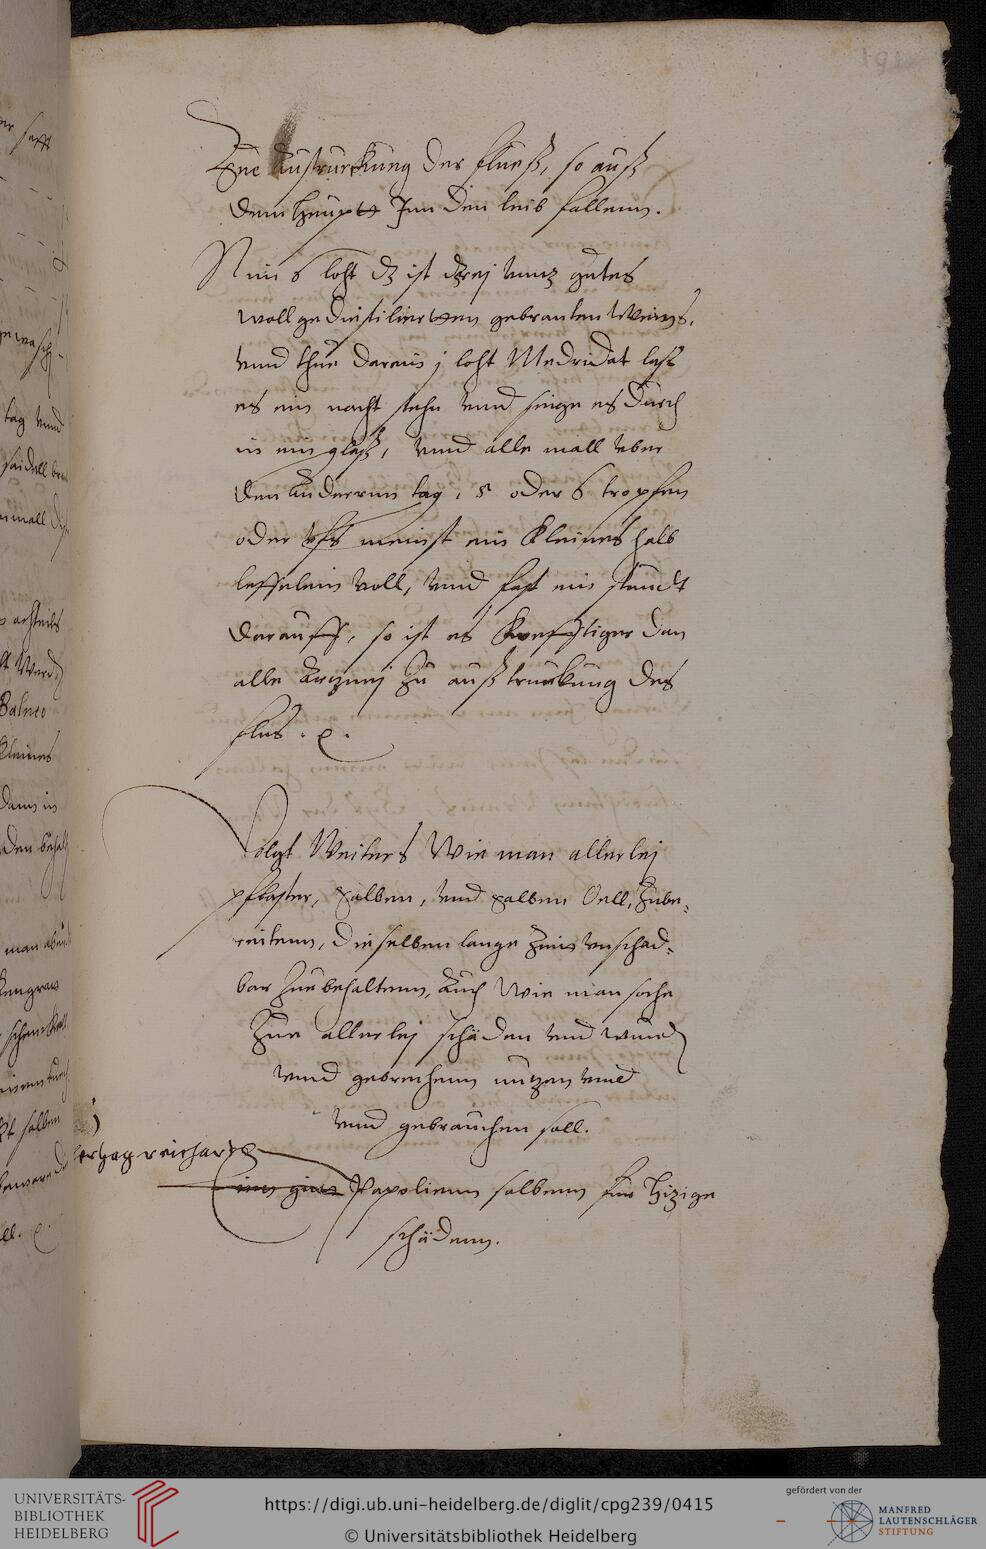 191
Zue Austruckung der fliess, so auß
dem heuptt Inn den leib fallenn.
Nim 6 loht dz ist drej vntz gutes
woll gedistilierttem gebranten Weins,
vnnd thue darein j loht Medridat laß
es ein nacht stehn vnnd seige es durch
in ein glaß, vnnd alle mall vber
den Anderenn tag, 5 oder 6 tropfen
oder vfs meinst ein kleines halb
leffelein voll, vnnd fast ein stundt
darauff, so ist es krefftiger dan
alle Artznej zu außtruckung des
flus.
Volgt Weiters Wie man allerlej
pflaster, salben, vnd salben Oell, Zube-
reitenn, dieselben lange Zeit vnschad-
bar Zue behaltenn, Auch Wie man solche
Zue allerlej schäden vnd wund
vnnd gebrechenn nutzen vnnd
vnnd gebrauchen soll.
hertzog reichardt
Eine gute Papolienn salbenn fur hitzige
schädenn.
er safft
tag vnnd
Balneo
kleines
dann in
UNIVERSITÄTS-
BIBLIOTHEK
HEIDELBERG
https://digi.ub.uni-heidelberg.de/diglit/cpg239/0415
© Universitätsbibliothek Heidelberg
gefördert von der
MANFRED
LAUTENSCHLÄGER
STIFTUNG